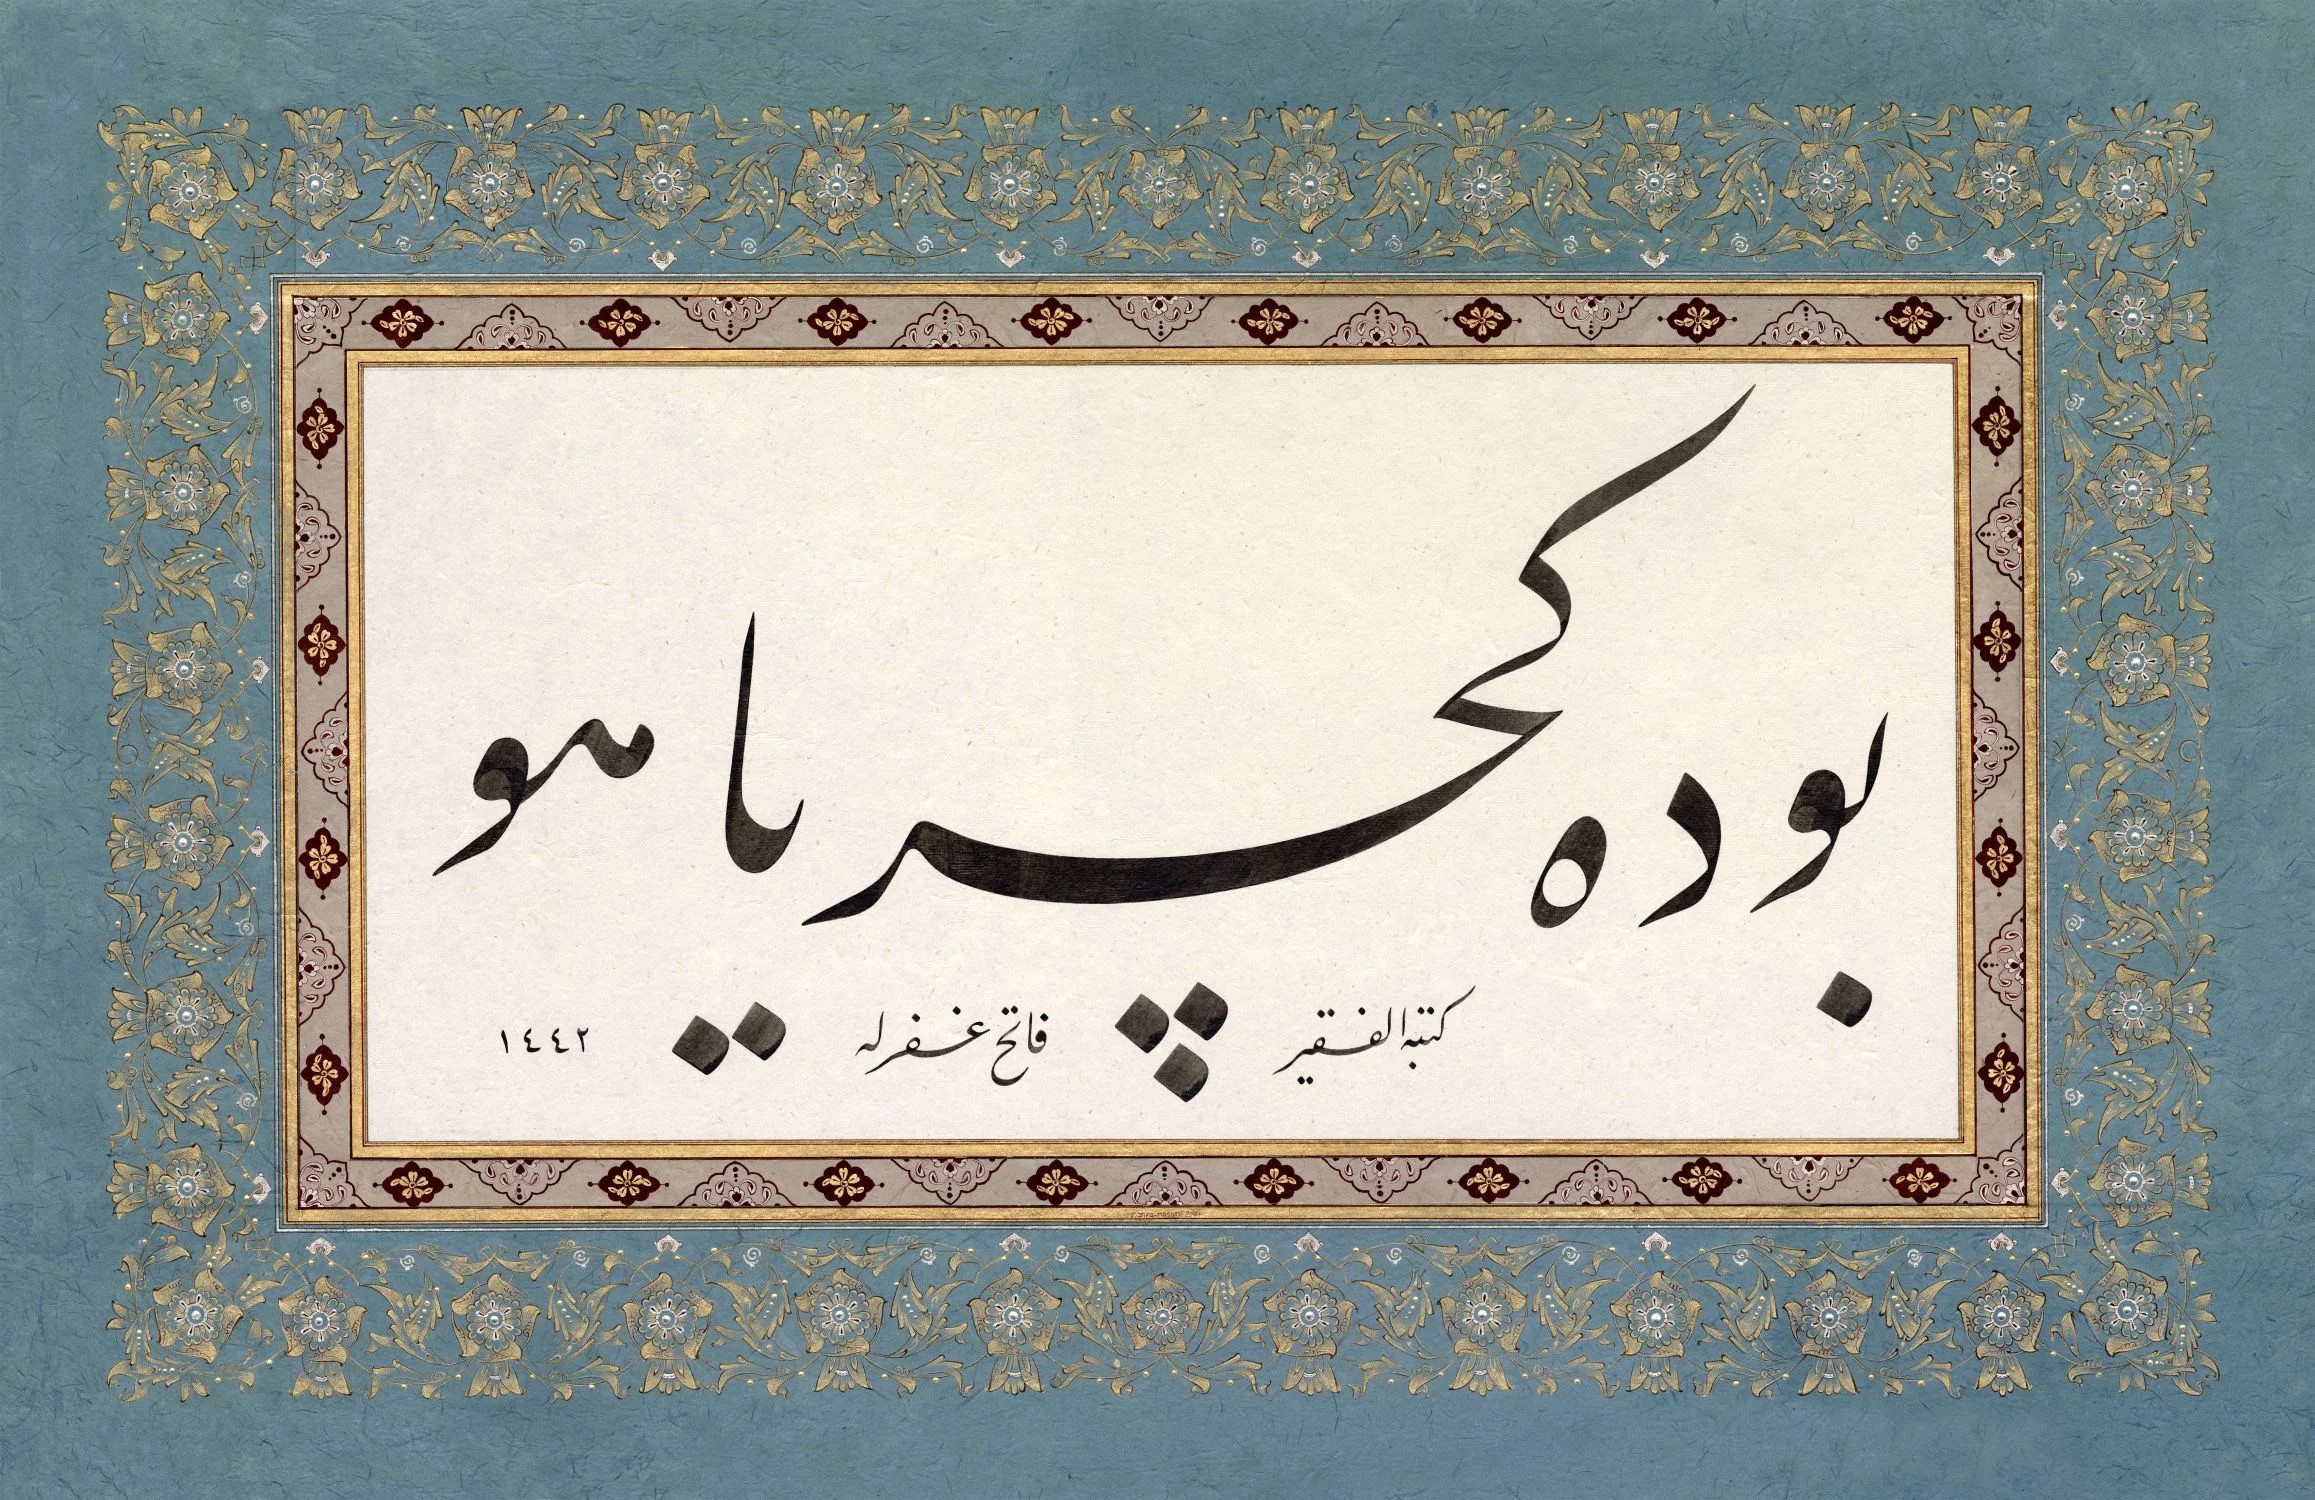 بو ده كچر يا هو
كتبه الفقير فاتح غفرله ١٤٤٢